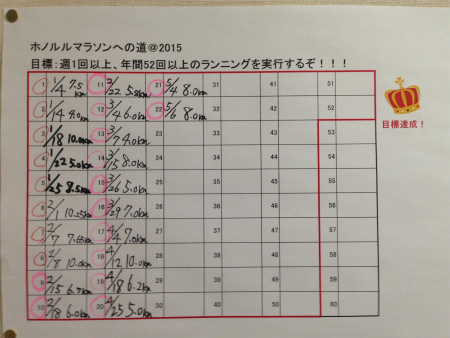 ホノルルマラソンへの道@2015
目標:週1回以上、年間52回以上のランニングを実行するぞ!!!
1 1/4 7.5km 11 2/22 5.8km 21 5/4 8.0km 31 41 51
2 1/14 4.0km 12 3/4 6.0km 22 5/6 8.0km 32 42 52
3 1/18 10.0km 13 3/7 4.0km 23 33 43 53
4 1/22 5.0km 14 3/15 8.0km 24 34 44 54
5 1/25 8.5km 15 3/26 5.0km 25 35 45 55
6 2/1 10.25km 16 3/29 7.0km 26 36 46 56
7 2/7 7.65km 17 4/4 7.0km 27 37 47 57
8 2/8 10.0km 18 4/12 10.0km 28 38 48 58
9 2/15 6.7km 19 4/18 6.2km 29 39 49 59
10 2/18 6.0km 20 4/25 5.0km 30 40 50 60
目標達成!